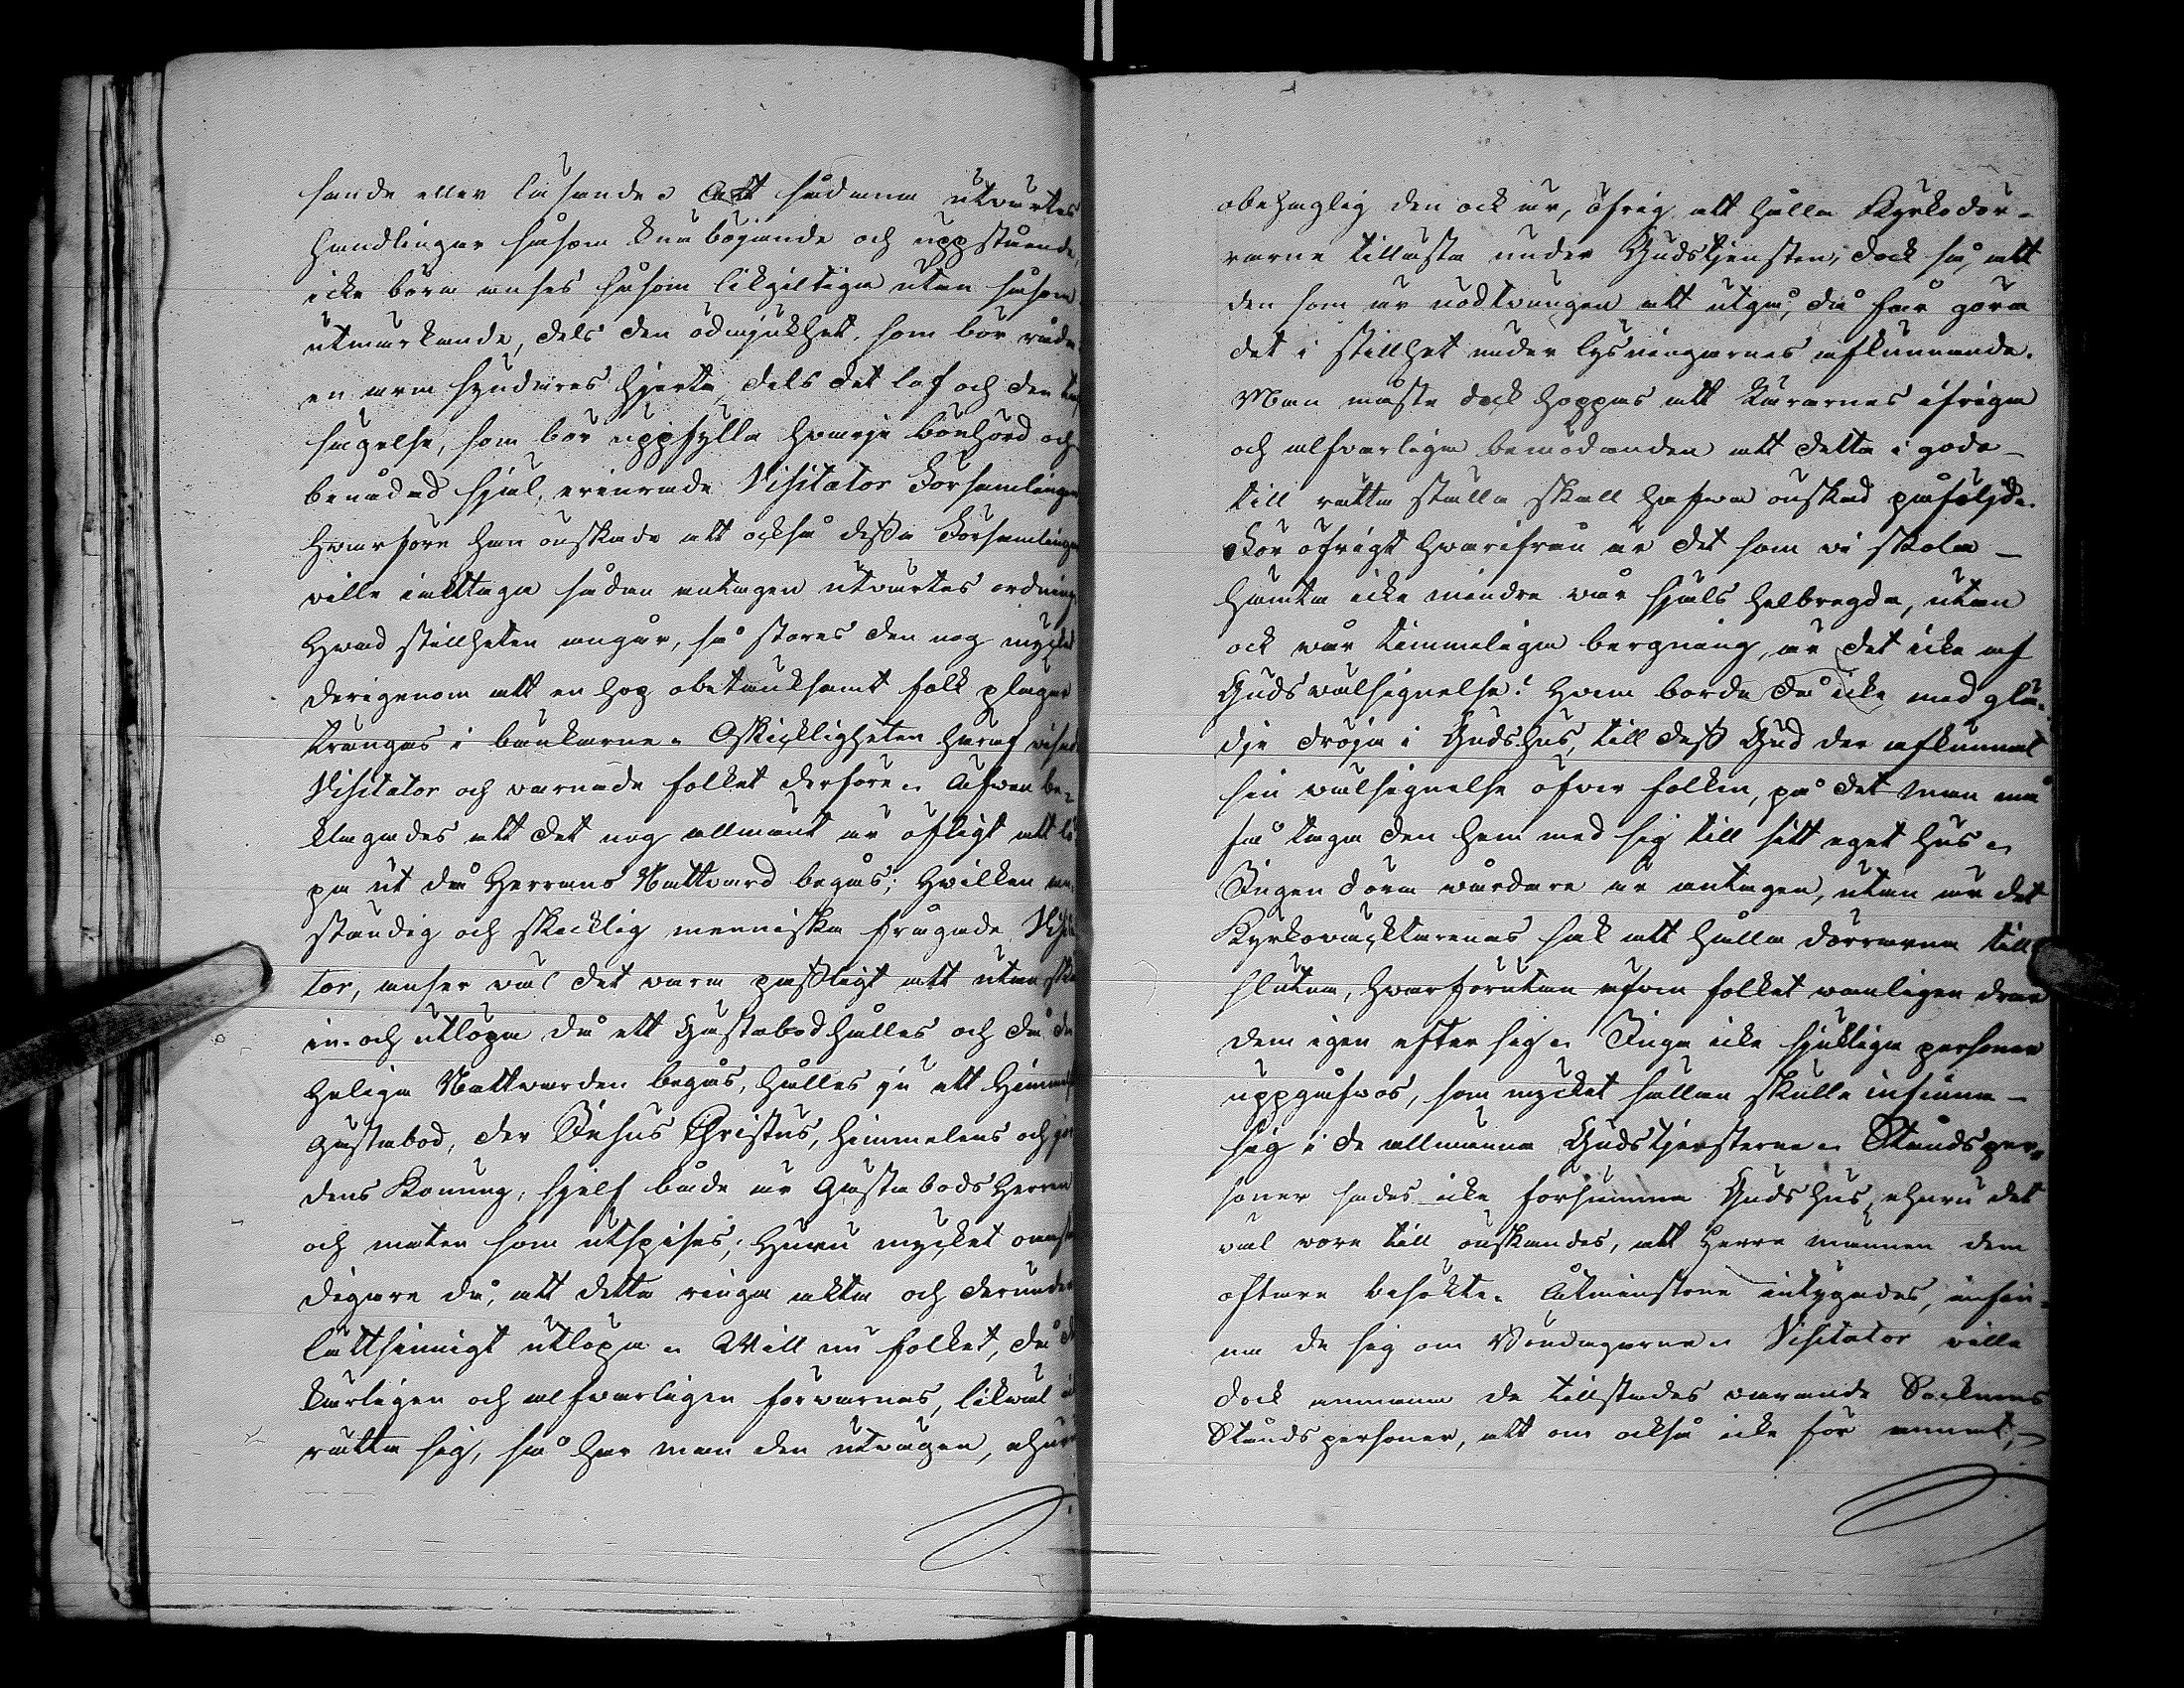 sande eller läsande. Att sådana utvärtes
handlingar såsom knäböjande och uppstående,
icke böra anses såsom likgiltiga utan såsom
utmärkande, dels den ödmjukhet, som bör råda
en arm syndares hjerta, dels det lof och den
sägelse, som bör uppfylla hvarje bönhörd och
benådad själ, erinrade Visitator Församlingen
hvarföre han önskade att också dessa Församlingar
ville iakttaga sådan antagen utvärtes ordning
Hvad stillheten angår, så störes den nog mycket
derigenom att en hop obetänksamt folk plägar
trängas i bänkarne. Oskickligheten häraf viste
Visitator och varnade folket derföre. Äfven be-
klagades att det nog allmänt är öfligt att lö
pa ut då Herrans Nattvard begås; Hvilken an-
ständig och skicklig menniska frågade Visita
tor, anser väl det vara passligt att utan
in- och utlöpa då ett Gästabod hålles och då den
heliga Nattvarden begås, hålles ju ett Himmelskt
Gästabod, der Jesus Christus, himmelens och jor
dens Konung, sjelf både är Gästabods Herren
och maten som utspises; Huru mycket oanstän
digare då, att detta ringa akta och derunder
lättsinnigt utlöpa. Will nu folket, då de
kärligen och alfvarligen förvarnas, likväl ei
rätta sig, så har man den utvägen, ehuru
obehaglig den ock är, öfrig att hålla Kyrkodör-
rarne tillåsta under Gudstjensten, dock så, att
den som är nödtvungen att utgå, då får göra
det i stillhet under lysningarnes afkunnande.
Man måste dock hoppas att Lärarnes ifriga
och alfvarliga bemödanden att detta i godo
till rätta ställa skall hafva önskad påföljd.
För öfrigt hvarifrån är det som vi skola
hämta icke mindre vår själs helbregda, utan
ock vår timmeliga bergning, är det icke af
Guds välsignelse? Hvem borde då icke med glä-
dje dröja i Guds hus, till dess Gud der afkunnat
sin välsignelse öfver folken, på det man må
få taga den hem med sig till sitt eget hus.
Ingen dörravårdare är antagen, utan är det
Kyrkoväcktarenas sak att hålla dörrarna till
slutna, hvarförutan äfven folket vanligen drar
dem igen efter sig. Inga icke sjukliga personer
uppgåfvos, som mycket sällan skulle infinna
sig i de allmänna Gudstjensterne. Ståndsper-
soner sades icke försumma Guds hus, ehuru det
väl vore till önskandes, att Herre männen dem
oftare besökte. Åtminstone intygades, infin-
na de sig om Böndagarne. Visitator ville
dock anmana de tillstädes varande Socknens
Ståndspersoner, att om också icke för annat,